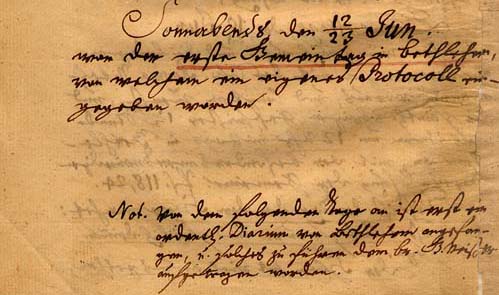 Sonnabends, den 12/23 Jun.
war der erste Gemein tag in Bethlehem,
von welchem ein eigenes Protocoll ein
gegeben worden.
Not. Von dem folgenden Tage an ist erst ein
ordentl. Diarium von Bethlehem angefan-
gen, u. solches zu führen dem br. G. Neisser
aufgetragen worden.